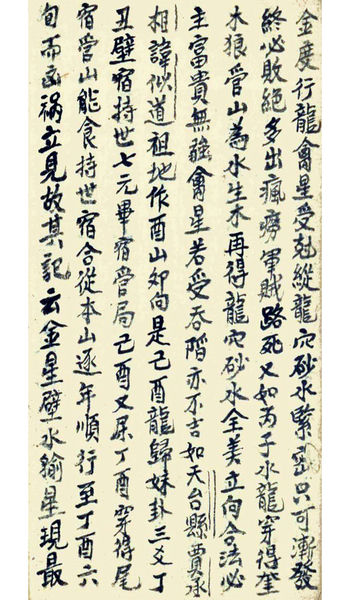 金度行龍禽星受剋縱龍穴砂水緊密只可漸發
終必敗絕多出瘋癆軍賊路死又如丙子水龍穿得奎
木狼管山為水生木再得龍穴砂水全美立向合法必
主富貴無疑禽星若受吞陷亦不吉如天台縣賈丞
相諱似道祖地作酉山卯向是己酉龍歸妹卦三爻丁
丑壁宿持世七元畢宿管局己酉又屬丁酉穿得尾
宿管山能食持世宿合從本山逐年順行至丁酉六
旬而凶禍立見故其記云金星壁水貐星現最